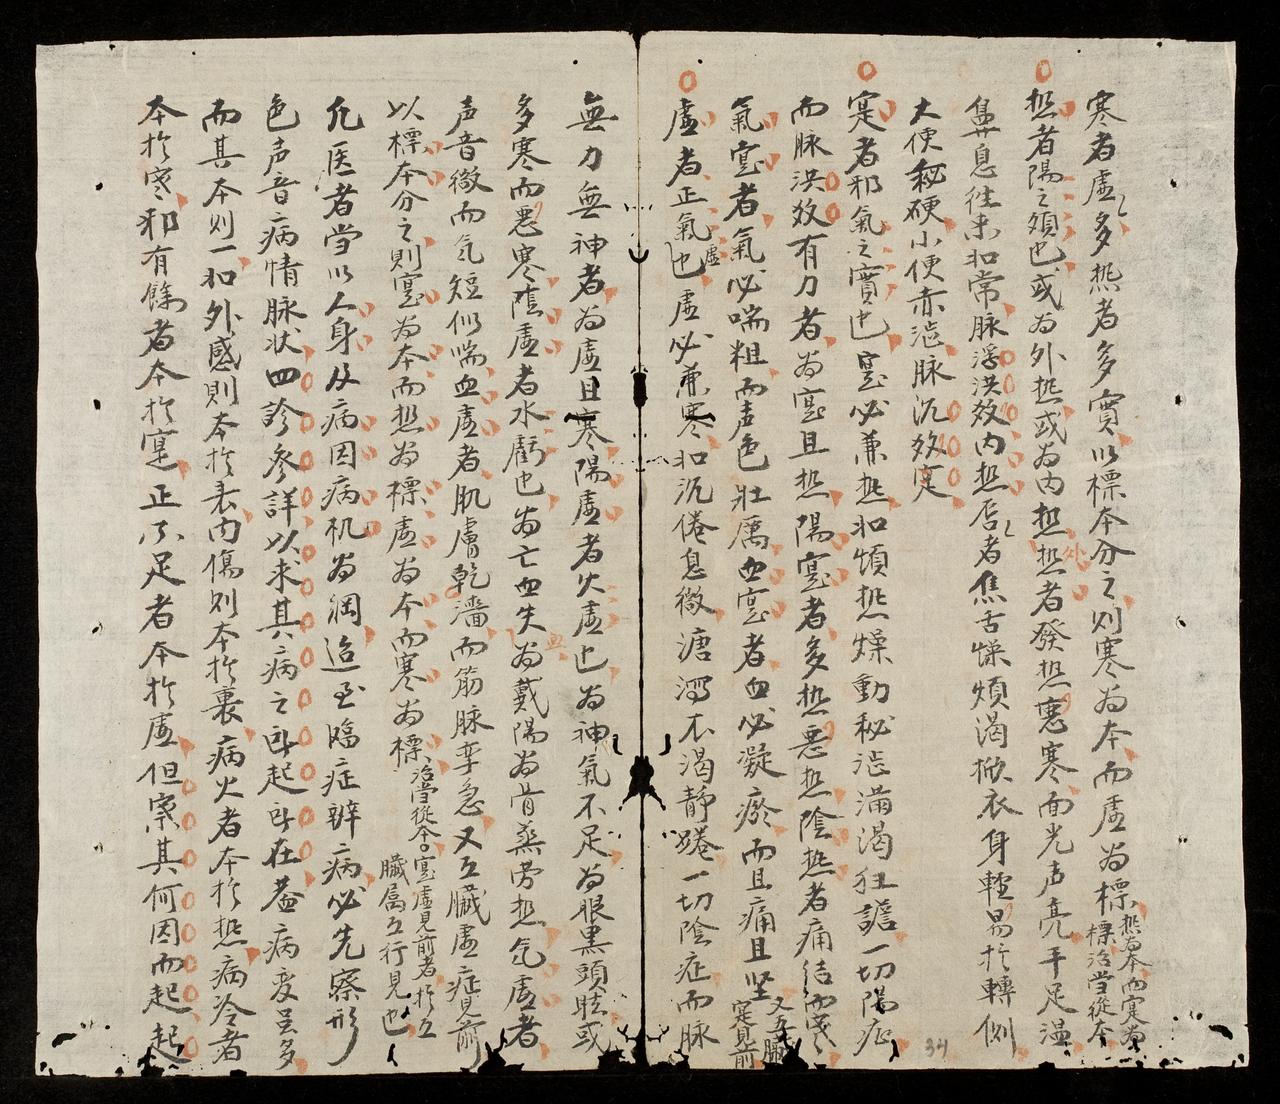 寒者虛多熱者多實以標本分之則寒為本而虛為標熱為本而寔為標治當從本
熱者陽之煩也或為外熱或為內熱外熱者發熱惡寒面光声亮手足溫
鼻息往來如常脉浮洪效內熱唇者焦舌燥煩渴掀衣身輕易於轉側
大便秘硬小便赤澁脉沉效寔
寔者邪氣之實也寔必兼熱如煩熱燥動秘澁滿渴狂譫一切陽症
而脉洪效有力者為寔且熱陽寔者多熱惡熱陰熱者痛結而寒
氣寔者氣必喘粗而声色壯厲血寔者血必凝瘀而且痛且坚又五臟寔見前
虛者正氣虛也虛必兼寒如沉倦息微溏瀉不渴靜踡一切陰症而脉
無力無神者為虛且寒陽虛者火虛也為神氣不足為眼黑頭眩或
多寒而惡寒陰虛者水虧也為亡血失血為戴陽為骨蒸劳熱气虛者
声音微而气短似喘血虛者肌膚乾濇而筋脉孪急又五臟虛症見前
以標本分之則寔為本而熱為標虛為本而寒為標治當從本寔虛見前者於五臟属五行見也
凢医者當以人身及病因病机為綱迨至臨症辨病必先察形
色声音病情脉状四診参詳以求其病之所起所在葢病变虽多
而其本則一如外感則本於表內傷則本於裏病火者本於熱病冷者
本於寒邪有餘者本於寔正不足者本於虛但察其何因而起起
34